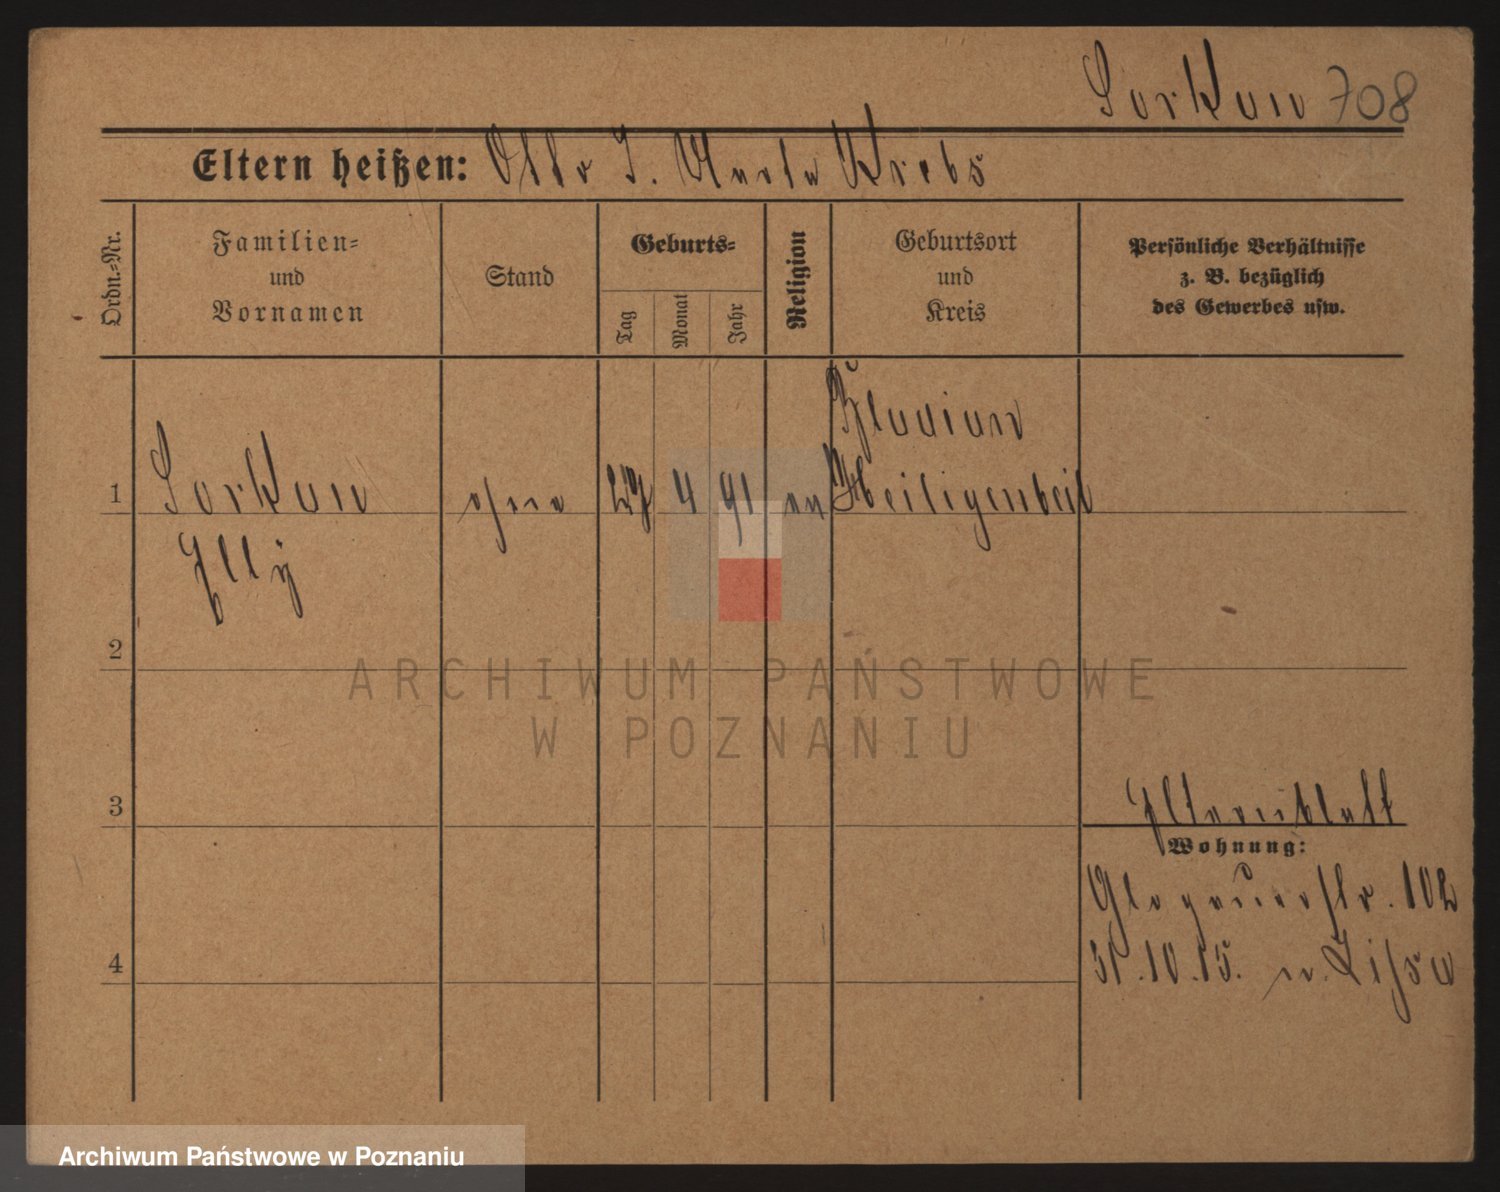 Sorkau 708
Eltern heißen: Otto J. Marta Krebs
Ordn.-Nr.
Familien-
und
Vornamen
Stand
Geburts-
Tag
Monat
Jahr
Religion
Geburtsort
und
Kreis
Persönliche Verhältnisse
z. B. bezüglich
des Gewerbes usw.
1
Sorkau
ohne
27
4
91
Heiligenbeil
Elly
2
3
4
Elternblatt
Wohnung:
Glogauerstr. 102
31.10.15. n. Lissa
ARCHIWUM PAŃSTWOWE
W POZNANIU
Archiwum Państwowe w Poznaniu